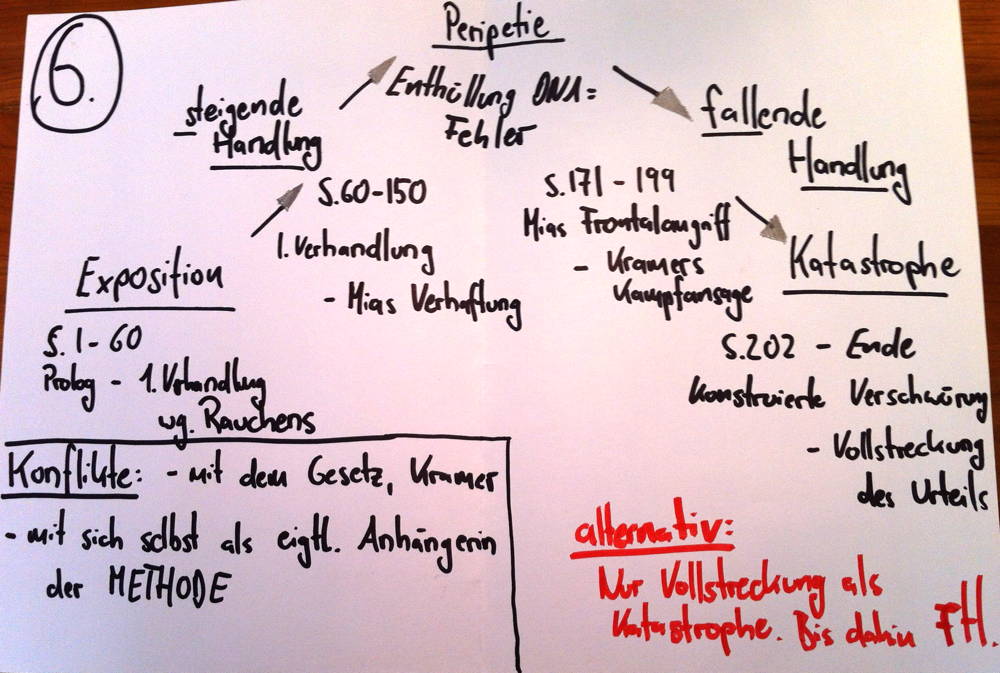 6.
Peripetie
Enthüllung DNA =
Fehler
steigende
Handlung
S. 60-150
1. Verhandlung
- Mias Verhaftung
Exposition
S. 1-60
Prolog - 1. Verhandlung
wg. Rauchens
fallende
Handlung
S. 171 - 199
Mias Frontalangriff
- Kramers
Kampfansage
Katastrophe
S. 202 - Ende
Konstruierte Verschwörung
- Vollstreckung
des Urteils
Konflikte: - mit dem Gesetz, Kramer
- mit sich selbst als eigtl. Anhängerin
der METHODE
alternativ:
Nur Vollstreckung als
Katastrophe. Bis dahin FH.